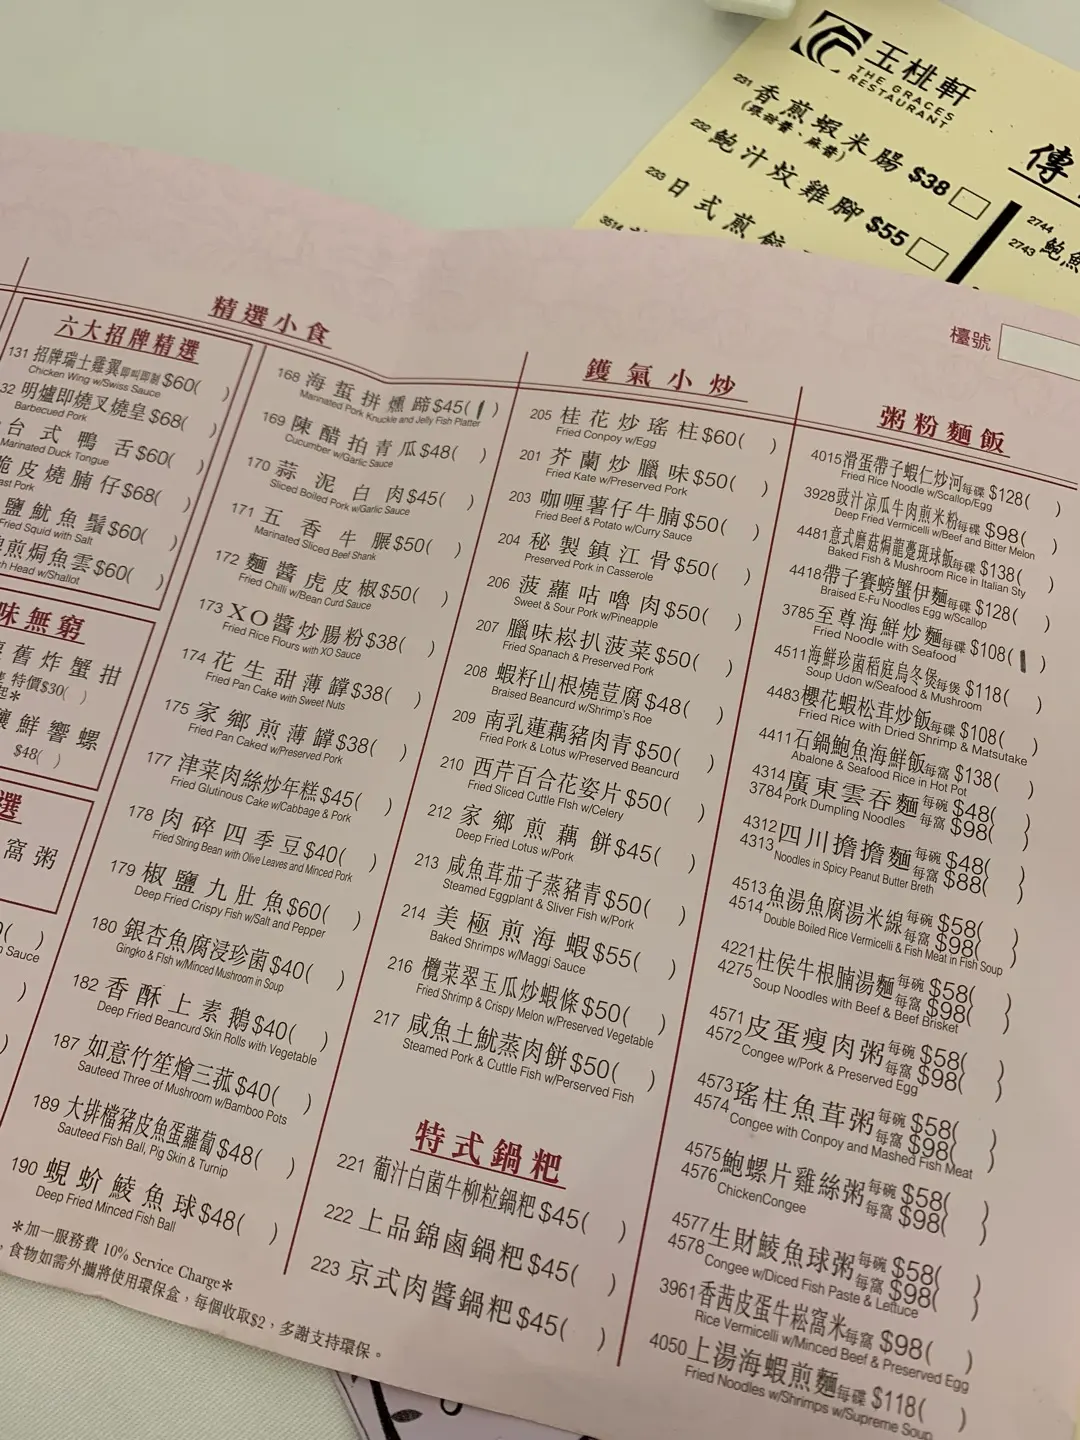 玉桃軒
THE GRACES
RESTAURANT
231 香煎蝦米腸 $38
(跟甜醬、麻醬)
232 鮑汁炆雞腳 $55
233 日式煎餃
3514
傳
2744
2743 鮑魚
檯號
六大招牌精選
131 招牌瑞士雞翼即叫即制 $60( )
Chicken Wing w/Swiss Sauce
32 明爐即燒叉燒皇 $68( )
Barbecued Pork
台式鴨舌 $60( )
Marinated Duck Tongue
脆皮燒腩仔 $68( )
ast Pork
鹽魷魚鬚 $60( )
Fried Squid with Salt
煎焗魚雲 $60( )
h Head w/Shallot
味無窮
舊炸蟹拑
特價$30( )
起*
釀鮮響螺
$48( )
選
窩粥
Sauce
精選小食
168 海蜇拼燻蹄 $45( )
Marinated Pork Knuckle and Jelly Fish Platter
169 陳醋拍青瓜 $48( )
Cucumber w/Garlic Sauce
170 蒜泥白肉 $45( )
Sliced Boiled Pork w/Garlic Sauce
171 五香牛𦟌 $50( )
Marinated Sliced Beef Shank
172 麵醬虎皮椒 $50( )
Fried Chilli w/Bean Curd Sauce
173 XO醬炒腸粉 $38( )
Fried Rice Flours with XO Sauce
174 花生甜薄罉 $38( )
Fried Pan Cake with Sweet Nuts
175 家鄉煎薄罉 $38( )
Fried Pan Caked w/Preserved Pork
177 津菜肉絲炒年糕 $45( )
Fried Glutinous Cake w/Cabbage & Pork
178 肉碎四季豆 $40( )
Fried String Bean with Olive Leaves and Minced Pork
179 椒鹽九肚魚 $60( )
Deep Fried Crispy Fish w/Salt and Pepper
180 銀杏魚腐浸珍菌 $40( )
Gingko & Fish w/Minced Mushroom in Soup
182 香酥上素鵝 $40( )
Deep Fried Beancurd Skin Rolls with Vegetable
187 如意竹笙燴三菰 $40( )
Sauteed Three of Mushroom w/Bamboo Pots
189 大排檔豬皮魚蛋蘿蔔 $48( )
Sauteed Fish Ball, Pig Skin & Turnip
190 蜆蚧鯪魚球 $48( )
Deep Fried Minced Fish Ball
*加一服務費 10% Service Charge*
，食物如需外攜將使用環保盒，每個收取$2，多謝支持環保。
鑊氣小炒
205 桂花炒瑤柱 $60( )
Fried Conpoy w/Egg
201 芥蘭炒臘味 $50( )
Fried Kate w/Preserved Pork
203 咖喱薯仔牛腩 $50( )
Fried Beef & Potato w/Curry Sauce
204 秘製鎮江骨 $50( )
Preserved Pork in Casserole
206 菠蘿咕嚕肉 $50( )
Sweet & Sour Pork w/Pineapple
207 臘味崧扒菠菜 $50( )
Fried Spanach & Preserved Pork
208 蝦籽山根燒荳腐 $48( )
Braised Beancurd w/Shrimp's Roe
209 南乳蓮藕豬肉青 $50( )
Fried Pork & Lotus w/Preserved Beancurd
210 西芹百合花姿片 $50( )
Fried Sliced Cuttle Fish w/Celery
212 家鄉煎藕餅 $45( )
Deep Fried Lotus w/Pork
213 咸魚茸茄子蒸豬青 $50( )
Steamed Eggplant & Sliver Fish w/Pork
214 美極煎海蝦 $55( )
Baked Shrimps w/Maggi Sauce
216 欖菜翠玉瓜炒蝦條 $50( )
Fried Shrimp & Crispy Melon w/Preserved Vegetable
217 咸魚土魷蒸肉餅 $50( )
Steamed Pork & Cuttle Fish w/Perserved Fish
特式鍋粑
221 葡汁白菌牛柳粒鍋粑 $45( )
222 上品錦鹵鍋粑 $45( )
223 京式肉醬鍋粑 $45( )
粥粉麵飯
4015 滑蛋帶子蝦仁炒河每碟 $128( )
Fried Rice Noodle w/Scallop/Egg
3928 豉汁凉瓜牛肉煎米粉每碟 $98( )
Deep Fried Vermicelli w/Beef and Bitter Melon
4481 意式磨菇焗龍躉斑球飯每碟 $138( )
Baked Fish & Mushroom Rice in Italian Sty
4418 帶子賽螃蟹伊麵每碟 $128( )
Braised E-Fu Noodles Egg w/Scallop
3785 至尊海鮮炒麵每碟 $108( )
Fried Noodle with Seafood
4511 海鮮珍菌稻庭烏冬煲每煲 $118( )
Soup Udon w/Seafood & Mushroom
4483 櫻花蝦松茸炒飯每碟 $108( )
Fried Rice with Dried Shrimp & Matsutake
4411 石鍋鮑魚海鮮飯每窩 $138( )
Abalone & Seafood Rice in Hot Pot
4314 廣東雲吞麵每碗 $48( )
3784 Pork Dumpling Noodles 每窩 $98( )
4312 四川擔擔麵每碗 $48( )
4313 Noodles in Spicy Peanut Butter Breth 每窩 $88( )
4513 魚湯魚腐湯米線每碗 $58( )
4514 每窩 $98( )
Double Boiled Rice Vermicelli & Fish Meat in Fish Soup
4221 柱侯牛根腩湯麵每碗 $58( )
4275 每窩 $98( )
Soup Noodles with Beef & Beef Brisket
4571 皮蛋瘦肉粥每碗 $58( )
4572 每窩 $98( )
Congee w/Pork & Preserved Egg
4573 瑤柱魚茸粥每碗 $58( )
4574 每窩 $98( )
Congee with Conpoy and Mashed Fish Meat
4575 鮑螺片雞絲粥每碗 $58( )
4576 ChickenCongee 每窩 $98( )
4577 生財鯪魚球粥每碗 $58( )
4578 每窩 $98( )
Congee w/Diced Fish Paste & Lettuce
3961 香茜皮蛋牛崧窩米每窩 $98( )
Rice Vermicelli w/Minced Beef & Preserved Egg
4050 上湯海蝦煎麵每碟 $118( )
Fried Noodles w/Shrimps w/Supreme Soup